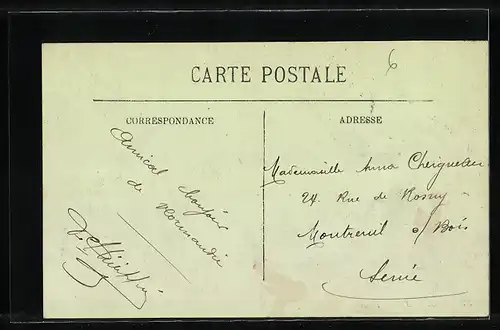 6
CARTE POSTALE
CORRESPONDANCE
Amical bonjour
de Normandie
ADRESSE
Mademoiselle Anna
24 Rue de Rosny
Montreuil s/ Bois
Seine